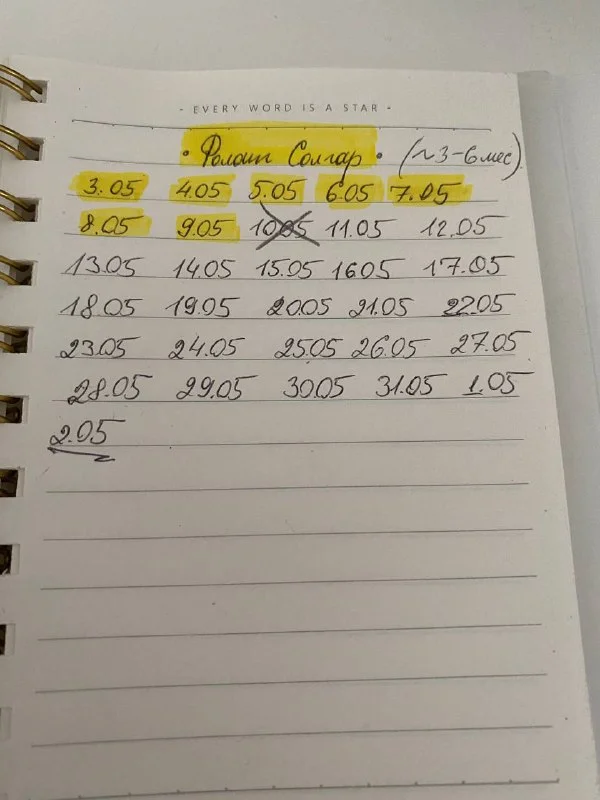 - EVERY WORD IS A STAR -
• Фолат Солгар • (~3-6 мес)
3.05 4.05 5.05 6.05 7.05
8.05 9.05 10.05 11.05 12.05
13.05 14.05 15.05 16.05 17.05
18.05 19.05 20.05 21.05 22.05
23.05 24.05 25.05 26.05 27.05
28.05 29.05 30.05 31.05 1.05
2.05